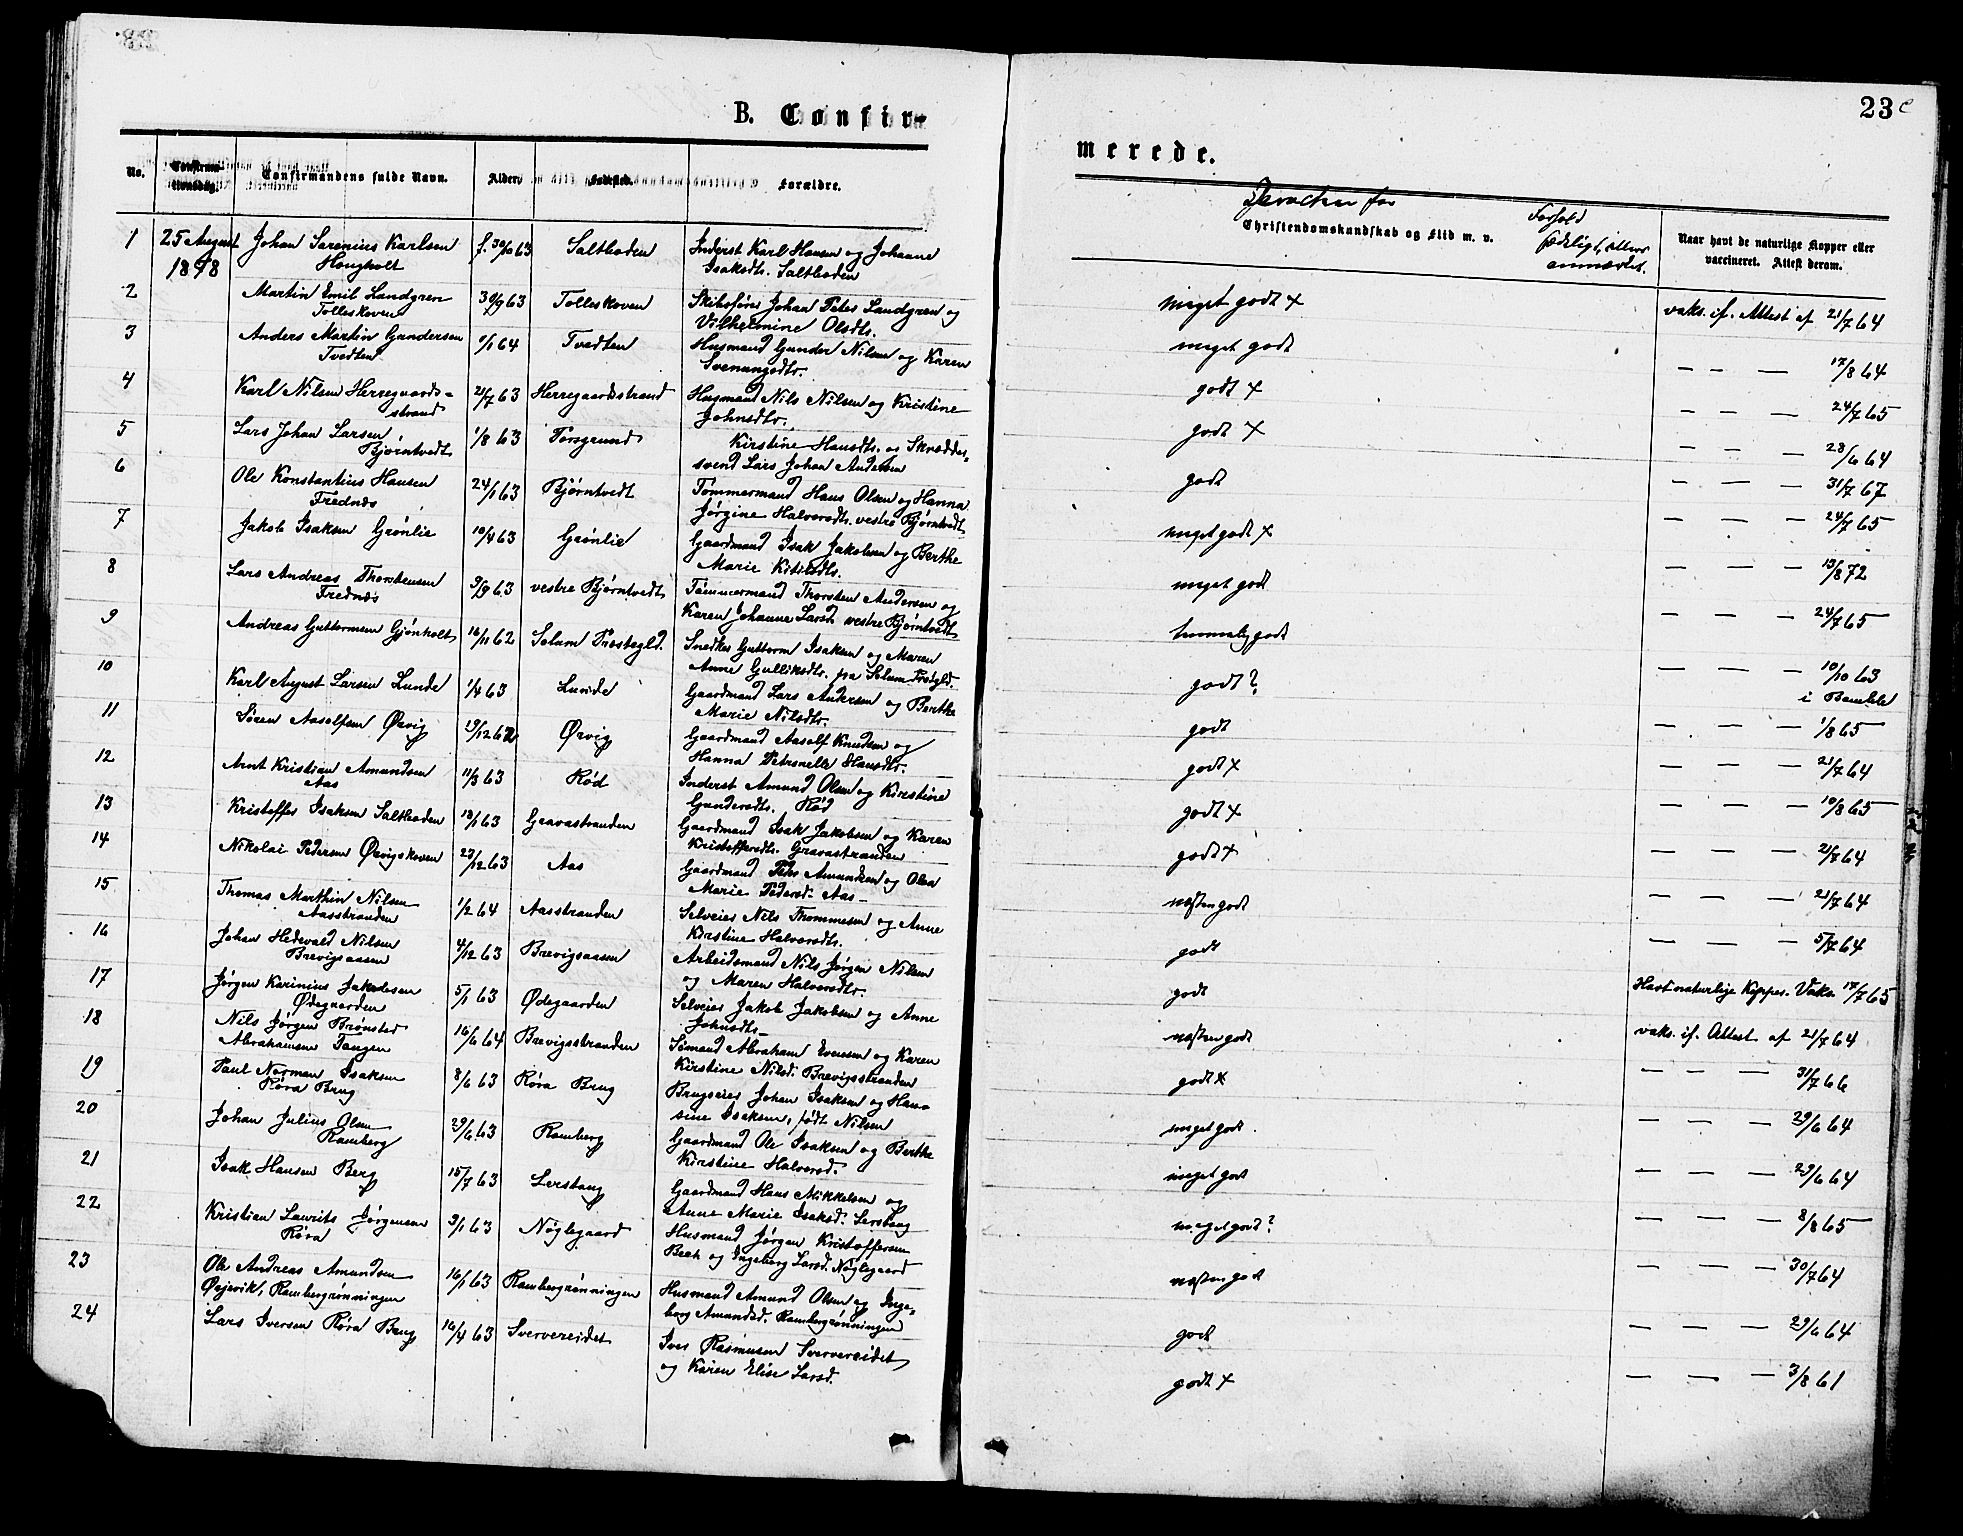 23
B. Confir
merede.
No.
Confirma-
tionsdag.
Confirmandens fulde Navn.
Alder.
Fødested.
Forældre.
Christendomskundskab og Flid m. v.
Forhold
Naar havt de naturlige Kopper eller
vaccineret. Attest derom.
1 25 August f. 30/10 63 Saltboden Inderst Karl Hansen og Johanne meget godt + vaks. if. Attest af 21/7 64
1878 Johan Karlsen Isaksdtr. Saltboden
2 Martin Emil Landgren 63 Tolleskoven Johan Peter Landgren og meget godt — — — 17/8 64
Tolleskoven Vilhelmine Olsdtr.
3 Anders Martin Gundersen 1/1 64 Tvedten Husmand Gunder Nilsen og Karen godt + — — — 24/7 65
Tvedten Svenungsdtr.
4 Karl Nilsen Herregaards- 21/7 63 Herregaardsstrand Husmand Nils Nilsen og Kristine godt + — — — 28/6 64
strand Johnsdtr.
5 Lars Johan Larsen 1/8 63 Porsgrund Kirstine Hansdtr. og Skrædder- godt — — — 31/7 67
Bjørntvedt svend Lars Johan Andersen
6 Ole Konstantius Hansen 24/1 63 Bjørntvedt Tømmermand Hans Olsen og Hanna meget godt + — — — 24/7 65
Frednæs Jørgine Halvorsdtr. vestre Bjørntvedt
7 Jakob Isaksen Grønlie 10/4 63 Grønlie Gaardmand Isak Jakobsen og Berthe meget godt — — — 13/8 72
Marie Kittilsdtr.
8 Lars Andreas Thorstensen 9/9 63 vestre Bjørntvedt Tømmermand Thorsten Andersen og godt — — — 24/7 65
Frednæs Karen Johanne Larsd. vestre Bjørntvedt
9 Andreas Guttormsen Gjønholt 16/11 62 Solum Præstegld. Snedker Guttorm Isaksen og Maren godt? — — — 10/10 63
Anne Gulliksdtr. paa Solum Præstgld. i Bamble
10 Karl August Larsen Lunde 1/4 63 Lunde Gaardmand Lars Andersen og Berthe godt — — — 1/8 65
Marie Nilsdtr.
11 Søren Aasolfsen Ørvig 19/12 62 Ørvig Gaardmand Aasolf Knudsen og godt + — — — 21/7 64
Hanna Petronelle Hansdtr.
12 Arnt Kristian Amundsen 11/3 63 Rød Inderst Amund Olsen og Kirstine godt + — — — 10/8 65
Aas Gundersdtr. Rød
13 Kristoffer Isaksen Saltboden 18/1 63 Gravastranden Gaardmand Isak Jakobsen og Karen godt + — — — 21/7 64
Kristoffersdtr. Gravastranden
14 Nikolai Pedersen Ørvigskoven 23/12 63 Aas Gaardmand Peder Amundsen og Olea næsten godt — — — 21/7 64
Marie Pedersd. Aas
15 Thomas Marthin Nilsen 1/2 64 Aasstranden Selveier Nils Thommesen og Anne godt — — — 5/7 64
Aasstranden Kirstine Halvorsdtr.
16 Johan Hedevald Nilsen 4/12 63 Brevigsaasen Arbeidsmand Nils Jørgen Nilsen godt Havt naturlige Kopper. Vaks. 17/7 65
Brevigsaasen og Maren Halvorsdtr.
17 Jørgen Karinius Jakobsen 5/1 63 Ødegaarden Selveier Jakob Jakobsen og Anne næsten godt vaks. if. Attest af 21/7 64
Ødegaarden Johnsdtr.
18 Nils Jørgen Brønsted 16/6 64 Brevigsstranden Sømand Abraham Evensen og Karen godt — — — 31/7 66
Abrahamsen Tangen Kirstine Nilsd. Brevigsstranden
19 Paul Norman Isaksen 8/6 63 Røra Brug Brugseier Johan Isaksen og Han- meget godt. — — — 29/6 64
Røra Brug sine Isaksen, født Nilsen
20 Johan Julius Olsen 29/6 63 Ramberg Gaardmand Ole Isaksen og Berthe meget godt — — — 29/6 64
Ramberg Kirstine Halvorsd.
21 Isak Hansen Berg 15/7 63 Lerstang Gaardmand Hans Mikkelsen og meget godt? — — — 8/8 65
Anne Marie Isaksd. Lerstang
22 Kristian Laurits Jørgensen 9/1 63 Nøglegaard Husmand Jørgen Kristoffersen næsten godt — — — 30/7 64
Røra Beck og Ingeborg Larsd. Nøglegaard
23 Ole Andreas Amundsen 16/1 63 Rambergrønningen Husmand Amund Olsen og Inge- godt — — — 29/6 64
Ørjevik, Rambergrønningen borg Amundsd. Rambergrønningen
24 Lars Iversen Røra Brug 16/4 63 Sververeidet Iver Rasmusen Sververeidet godt + — — — 3/8 61
og Karen Elise Larsd.